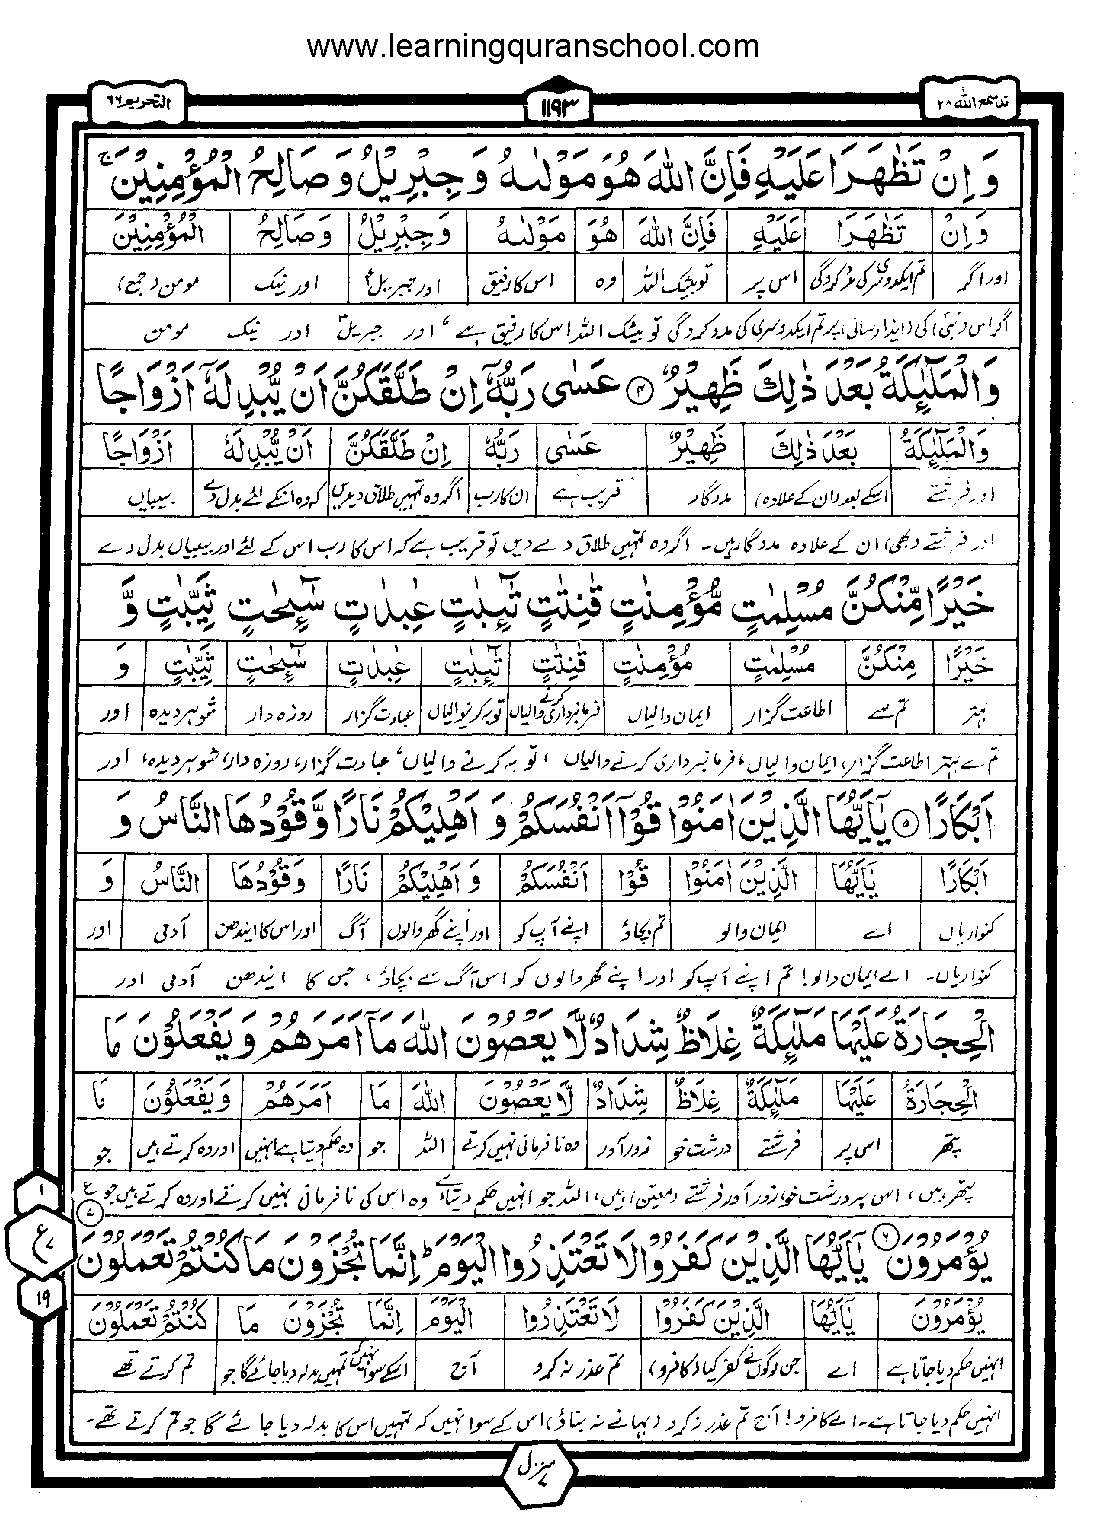 www.learningquranschool.com
قد سمع اللہ ٢٨
١١٩٣
التحريم ٦٦
وَاِنْ تَظٰهَرَا عَلَيْهِ فَاِنَّ اللّٰهَ هُوَ مَوْلٰىهُ وَجِبْرِيْلُ وَصَالِحُ الْمُؤْمِنِيْنَ ۚ
وَاِنْ تَظٰهَرَا عَلَيْهِ فَاِنَّ اللّٰهَ هُوَ مَوْلٰىهُ وَجِبْرِيْلُ وَصَالِحُ الْمُؤْمِنِيْنَ
اور اگر تم ایکدوسری کی مدد کرو گی اس پر تو بیشک اللہ وہ اس کا رفیق اور جبریلؑ اور نیک مومن (جمع)
اگر اس (نبیؐ) کی (ایذا رسانی) پر تم ایکدوسری کی مدد کرو گی تو بیشک اللہ اس کا رفیق ہے، اور جبریلؑ اور نیک مومن
وَالْمَلٰٓئِكَةُ بَعْدَ ذٰلِكَ ظَهِيْرٌ ۴ عَسٰى رَبُّهٗٓ اِنْ طَلَّقَكُنَّ اَنْ يُّبْدِلَهٗٓ اَزْوَاجًا
وَالْمَلٰٓئِكَةُ بَعْدَ ذٰلِكَ ظَهِيْرٌ عَسٰى رَبُّهٗ اِنْ طَلَّقَكُنَّ اَنْ يُّبْدِلَهٗ اَزْوَاجًا
اور فرشتے اسکے بعد (ان کے علاوہ) مددگار قریب ہے ان کا رب اگر وہ تمہیں طلاق دیدیں کہ وہ انکے لئے بدل دے بیبیاں
اور فرشتے (بھی) ان کے علاوہ مددگار ہیں۔ اگر وہ تمہیں طلاق دے دیں تو قریب ہے کہ اس کا رب اس کے لئے اور بیبیاں بدل دے
خَيْرًا مِّنْكُنَّ مُسْلِمٰتٍ مُّؤْمِنٰتٍ قٰنِتٰتٍ تٰٓئِبٰتٍ عٰبِدٰتٍ سٰٓئِحٰتٍ ثَيِّبٰتٍ وَّ
خَيْرًا مِنْكُنَّ مُسْلِمٰتٍ مُؤْمِنٰتٍ قٰنِتٰتٍ تٰٓئِبٰتٍ عٰبِدٰتٍ سٰٓئِحٰتٍ ثَيِّبٰتٍ وَ
بہتر تم سے اطاعت گزار ایمان والیاں فرمانبرداری کرنے والیاں توبہ کرنیوالیاں عبادت گزار روزہ دار شوہر دیدہ اور
تم سے بہتر اطاعت گزار، ایمان والیاں، فرمانبرداری کرنے والیاں، توبہ کرنے والیاں، عبادت گزار، روزہ دار، شوہر دیدہ، اور
اَبْكَارًا ۵ يٰٓاَيُّهَا الَّذِيْنَ اٰمَنُوْا قُوْٓا اَنْفُسَكُمْ وَاَهْلِيْكُمْ نَارًا وَّقُوْدُهَا النَّاسُ وَ
اَبْكَارًا يٰٓاَيُّهَا الَّذِيْنَ اٰمَنُوْا قُوْٓا اَنْفُسَكُمْ وَاَهْلِيْكُمْ نَارًا وَقُوْدُهَا النَّاسُ وَ
کنواریاں اے ایمان والو تم بچاؤ اپنے آپ کو اور اپنے گھر والوں آگ اور اس کا ایندھن آدمی اور
کنواریاں۔ اے ایمان والو! تم اپنے آپ کو اور اپنے گھر والوں کو اس آگ سے بچاؤ، جس کا ایندھن آدمی اور
الْحِجَارَةُ عَلَيْهَا مَلٰٓئِكَةٌ غِلَاظٌ شِدَادٌ لَّا يَعْصُوْنَ اللّٰهَ مَآ اَمَرَهُمْ وَيَفْعَلُوْنَ مَا
الْحِجَارَةُ عَلَيْهَا مَلٰٓئِكَةٌ غِلَاظٌ شِدَادٌ لَا يَعْصُوْنَ اللّٰهَ مَا اَمَرَهُمْ وَيَفْعَلُوْنَ مَا
پتھر اس پر فرشتے درشت خو زور آور وہ نافرمانی نہیں کرتے اللہ جو وہ حکم دیتا ہے انہیں اور وہ کرتے ہیں جو
پتھر ہیں، اس پر درشت خو، زور آور فرشتے (معین) ہیں، اللہ جو انہیں حکم دیتا ہے وہ اس کی نافرمانی نہیں کرتے اور وہ کرتے ہیں جو
يُؤْمَرُوْنَ ۶ يٰٓاَيُّهَا الَّذِيْنَ كَفَرُوْا لَا تَعْتَذِرُوا الْيَوْمَ ؕ اِنَّمَا تُجْزَوْنَ مَا كُنْتُمْ تَعْمَلُوْنَ ۷ ع
١
ع ٧
١٩
يُؤْمَرُوْنَ يٰٓاَيُّهَا الَّذِيْنَ كَفَرُوْا لَا تَعْتَذِرُوا الْيَوْمَ اِنَّمَا تُجْزَوْنَ مَا كُنْتُمْ تَعْمَلُوْنَ
انہیں حکم دیا جاتا ہے اے جن لوگوں نے کفر کیا (کافرو) تم عذر نہ کرو آج اسکے سوا نہیں کہ تمہیں بدلہ دیا جائے گا جو تم کرتے تھے
انہیں حکم دیا جاتا ہے۔ اے کافرو! آج تم عذر نہ کرو (بہانے نہ بناؤ) اس کے سوا نہیں کہ تمہیں اس کا بدلہ دیا جائے گا جو تم کرتے تھے۔
منزل ٧